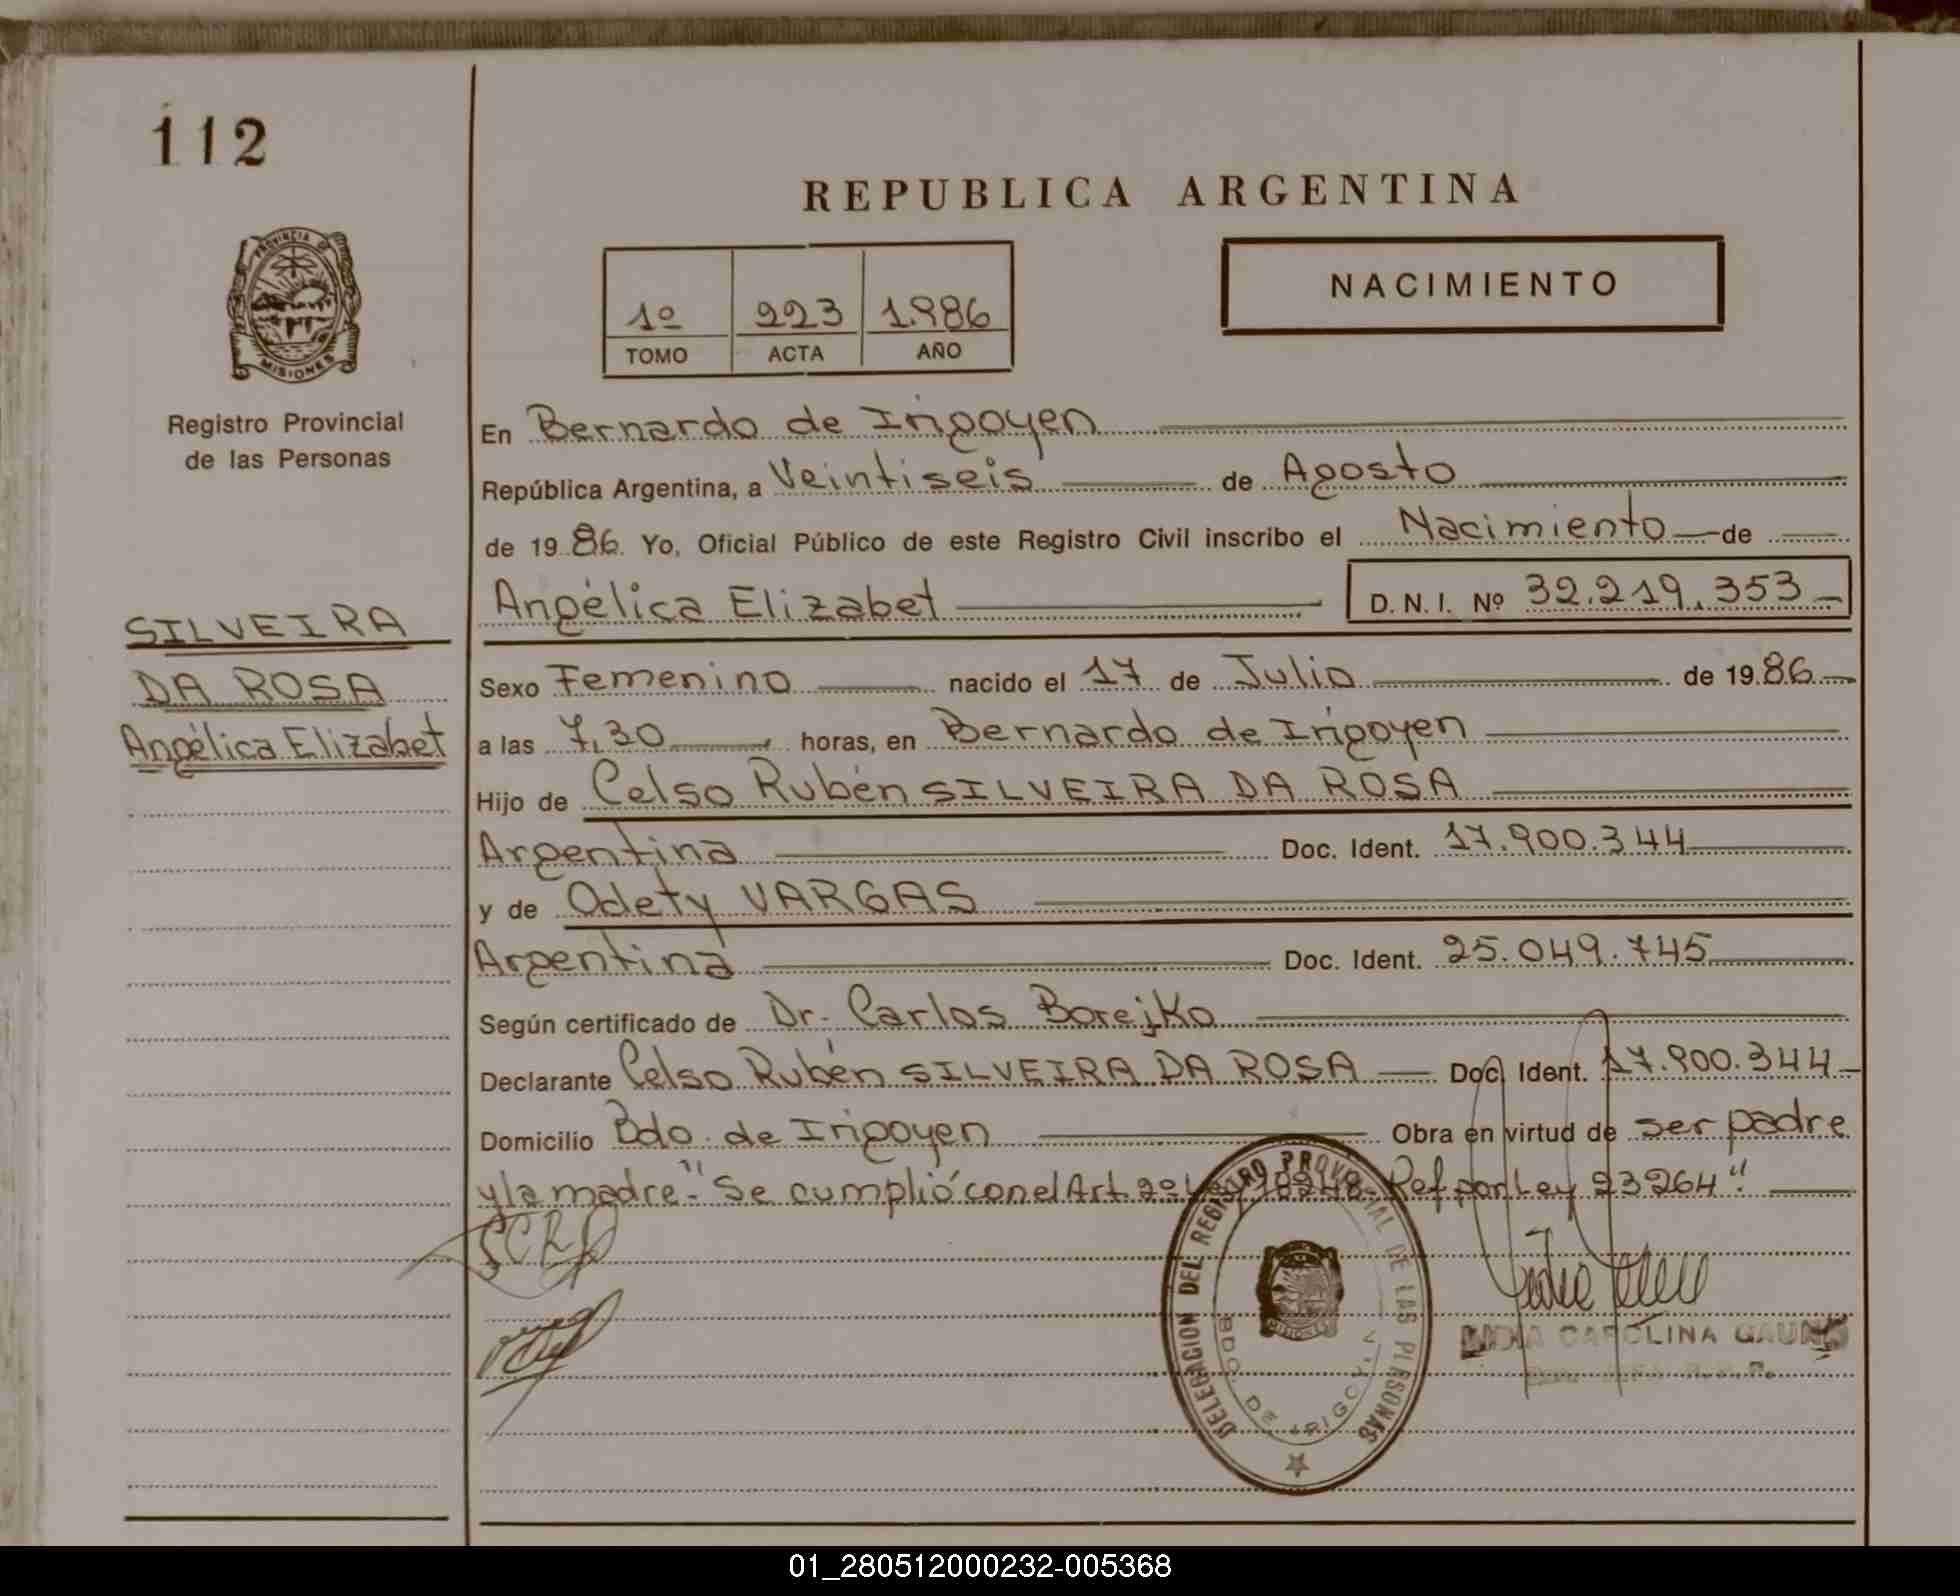 112
REPUBLICA ARGENTINA
NACIMIENTO
1º 223 1.986
TOMO ACTA AÑO
PROVINCIA DE
MISIONES
Registro Provincial
de las Personas
SILVEIRA
DA ROSA
Angélica Elizabet
En Bernardo de Irigoyen
República Argentina, a Veintiseis de Agosto
de 19 86. Yo, Oficial Público de este Registro Civil inscribo el Nacimiento de
Angélica Elizabet D. N. I. Nº 32.219.353
Sexo Femenino nacido el 17 de Julio de 19 86
a las 7,30 horas, en Bernardo de Irigoyen
Hijo de Celso Rubén SILVEIRA DA ROSA
Argentina Doc. Ident. 17.900.344
y de Odety VARGAS
Argentina Doc. Ident. 25.049.745
Según certificado de Dr. Carlos Borejko
Declarante Celso Rubén SILVEIRA DA ROSA Doc. Ident. 17.900.344
Domicilio Bdo. de Irigoyen Obra en virtud de ser padre
y la madre. "Se cumplió con el Art. 2º Ley 18248. Ref por Ley 23264".
SCR
DELEGACION DEL REGISTRO PROVINCIAL DE LAS PERSONAS
MISIONES
BDO. DE IRIGOYEN
LIDIA CAROLINA GAUNA
01_280512000232-005368